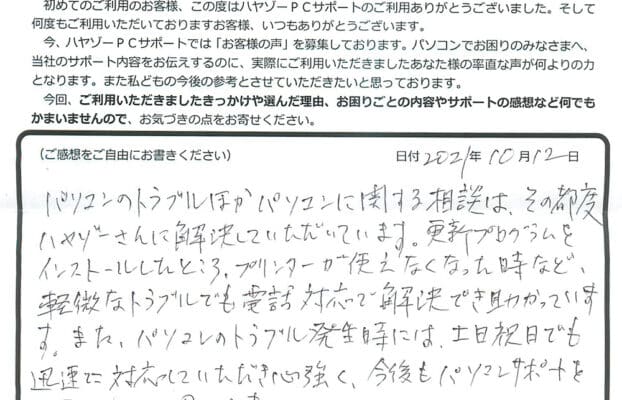 初めてのご利用のお客様、この度はハヤゾーＰＣサポートのご利用ありがとうございました。そして
何度もご利用いただいておりますお客様、いつもありがとうございます。
今、ハヤゾーＰＣサポートでは「お客様の声」を募集しております。パソコンでお困りのみなさまへ、
当社のサポート内容をお伝えするのに、実際にご利用いただきましたあなた様の率直な声が何よりの力
となります。また私どもの今後の参考とさせていただきたいと思っております。
今回、ご利用いただきましたきっかけや選んだ理由、お困りごとの内容やサポートの感想など何でも
かまいませんので、お気づきの点をお寄せください。
(ご感想をご自由にお書きください) 日付 2021年10月12日
パソコンのトラブルほかパソコンに関する相談は、その都度
ハヤゾーさんに解決していただいています。更新プログラムを
インストールしたところ、プリンターが使えなくなった時など、
軽微なトラブルでも電話対応で解決でき助かっていま
す。また、パソコンのトラブル発生時には、土日祝日でも
迅速に対応していただき心強く、今後もパソコンサポートを